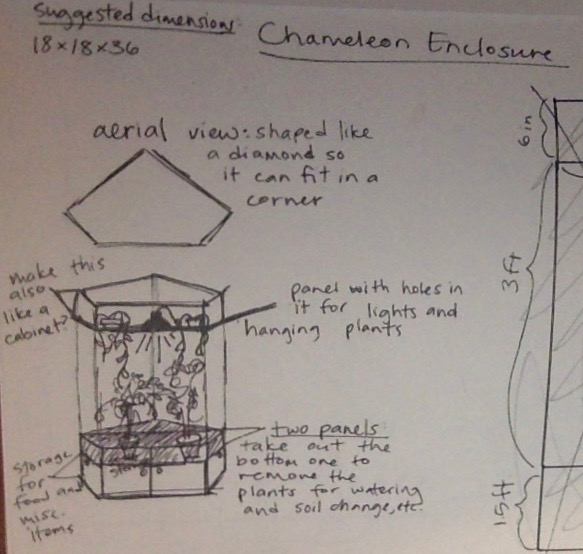 suggested dimensions:
18×18×36
Chameleon Enclosure
aerial view: shaped like
a diamond so
it can fit in a
corner
6 in
3 ft
make this
also
like a
cabinet?
panel with holes in
it for lights and
hanging plants
storage
for
food and
misc.
items
two panels
take out the
bottom one to
remove the
plants for watering
and soil change, etc.